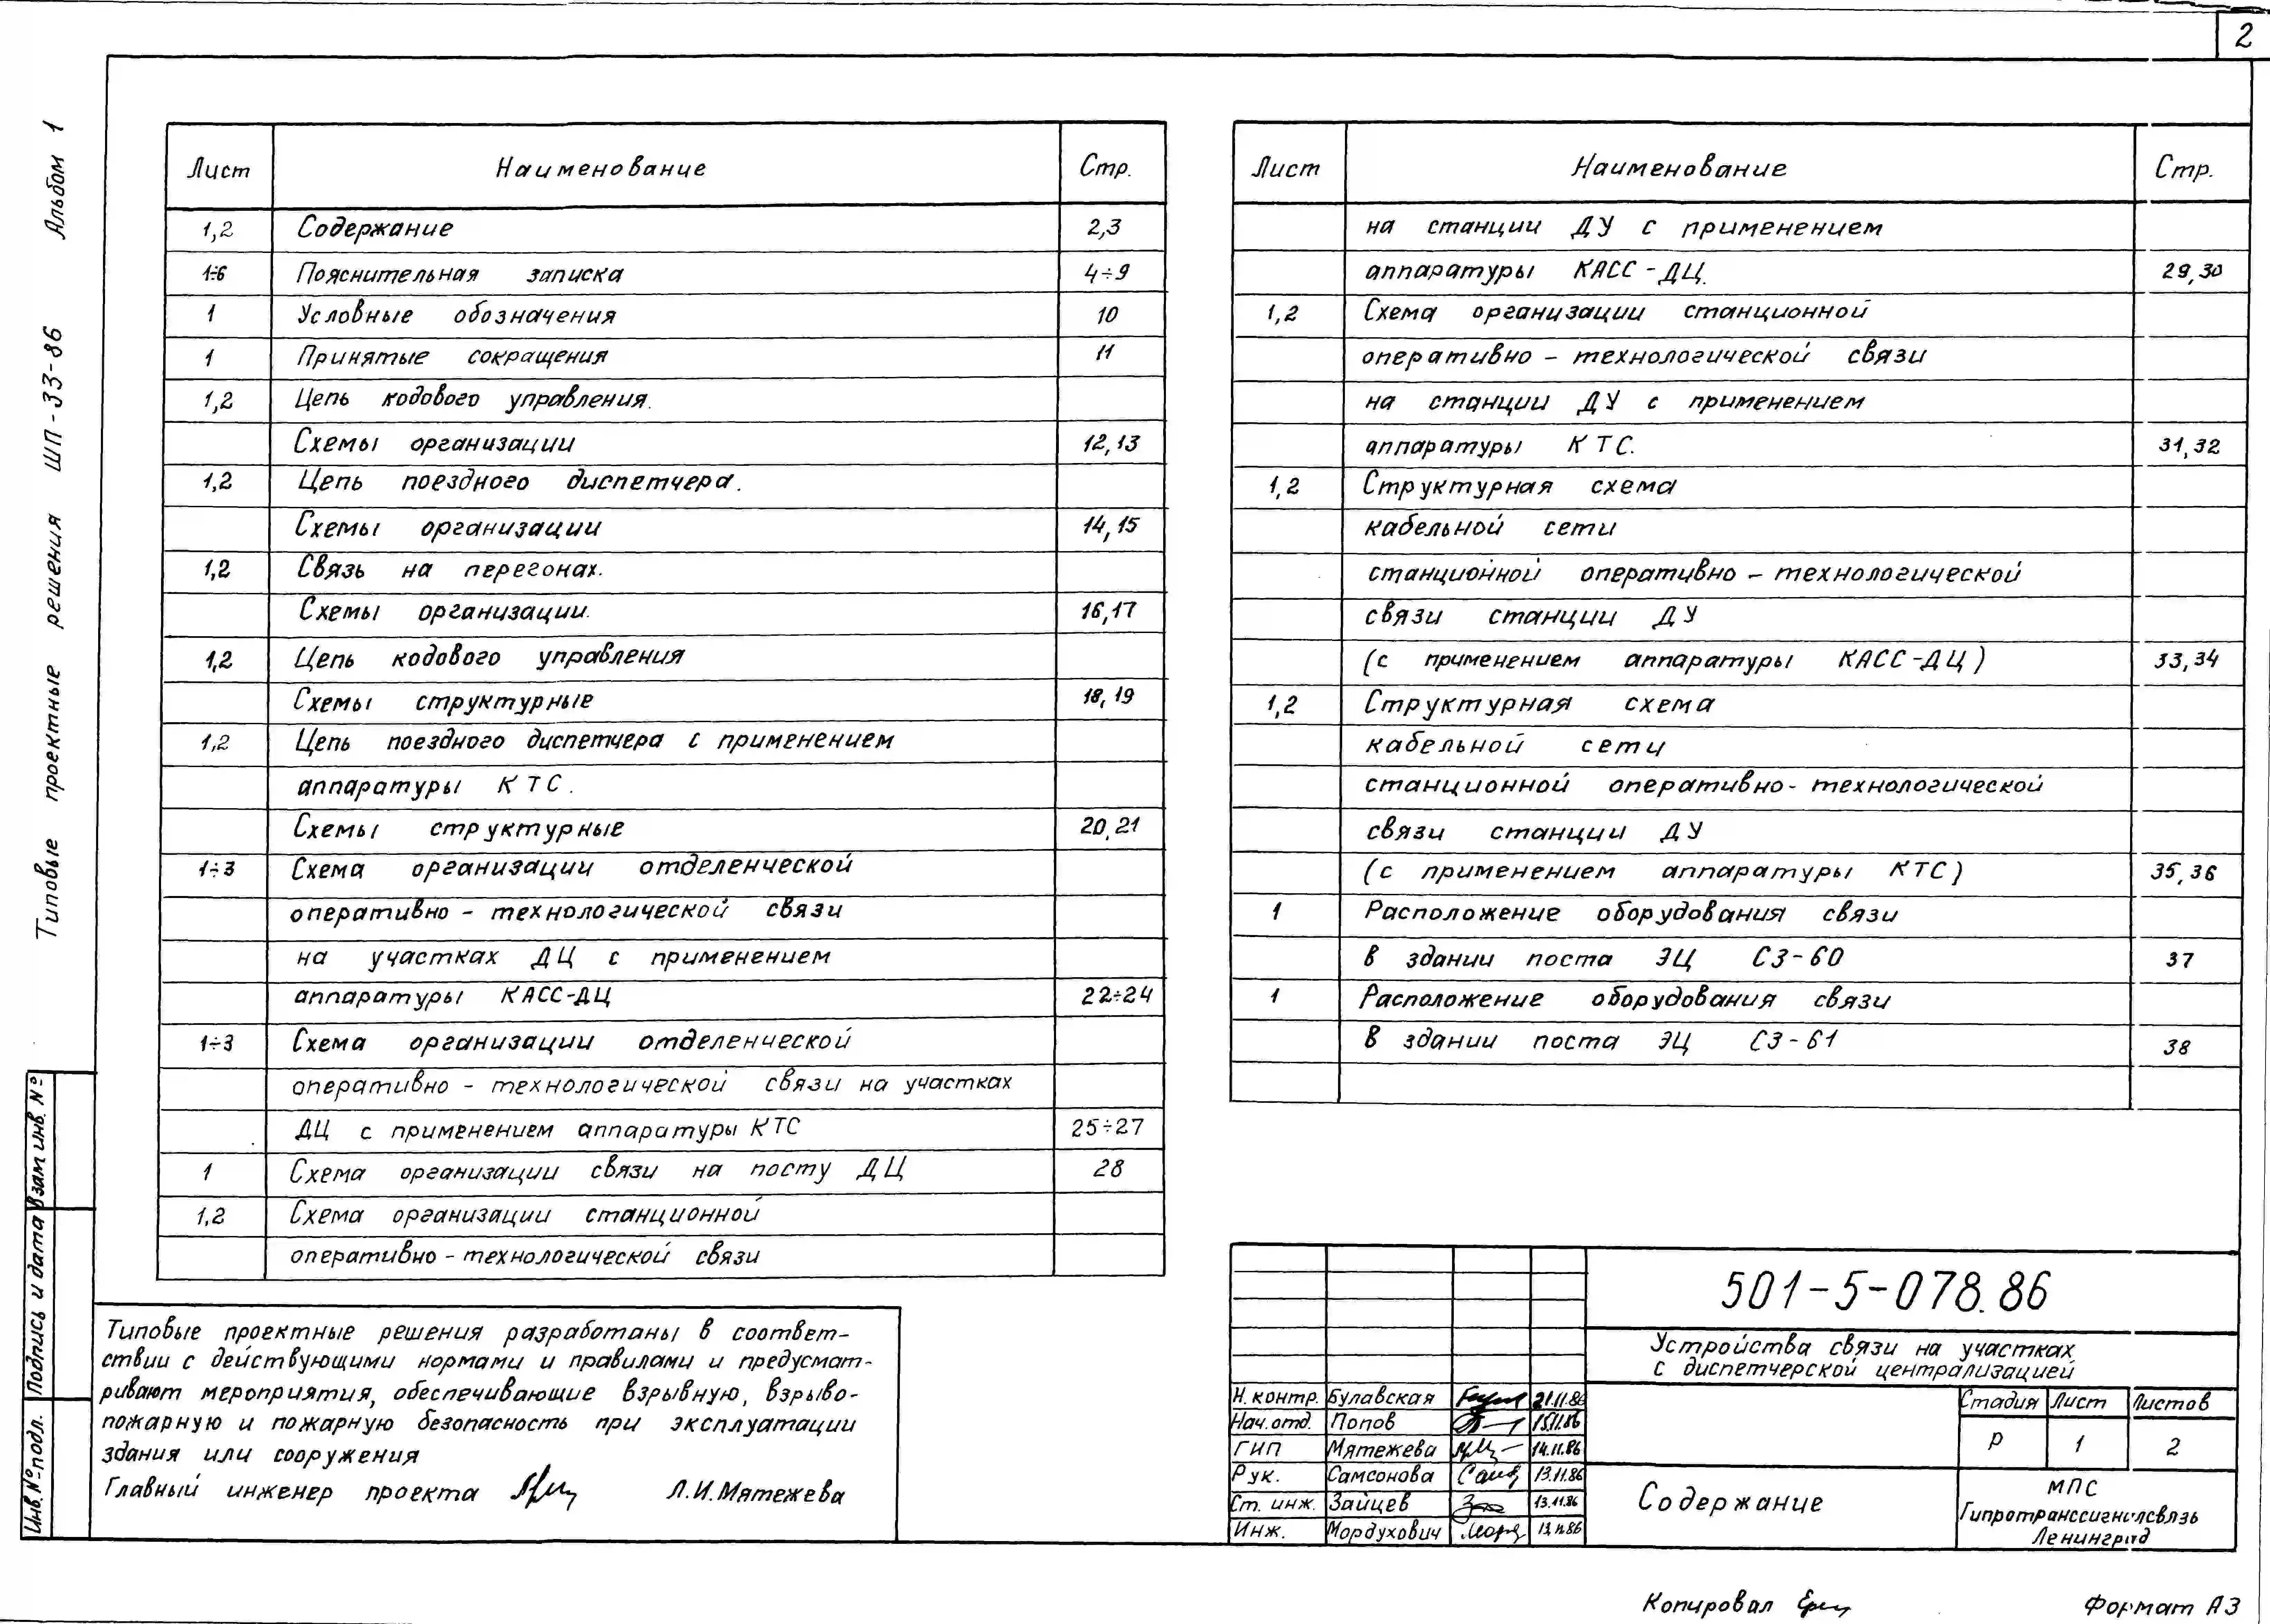 2
Альбом 1
Типовые проектные решения ШП-33-86
Лист Наименование Стр.
1,2 Содержание 2,3
1÷6 Пояснительная записка 4÷9
1 Условные обозначения 10
1 Принятые сокращения 11
1,2 Цепь кодового управления.
Схемы организации 12,13
1,2 Цепь поездного диспетчера.
Схемы организации 14,15
1,2 Связь на перегонах.
Схемы организации. 16,17
1,2 Цепь кодового управления
Схемы структурные 18,19
1,2 Цепь поездного диспетчера с применением
аппаратуры КТС.
Схемы структурные 20,21
1÷3 Схема организации отделенческой
оперативно - технологической связи
на участках ДЦ с применением
аппаратуры КАСС-ДЦ 22÷24
1÷3 Схема организации отделенческой
оперативно - технологической связи на участках
ДЦ с применением аппаратуры КТС 25÷27
1 Схема организации связи на посту ДЦ 28
1,2 Схема организации станционной
оперативно - технологической связи
Лист Наименование Стр.
на станции ДУ с применением
аппаратуры КАСС-ДЦ. 29,30
1,2 Схема организации станционной
оперативно - технологической связи
на станции ДУ с применением
аппаратуры КТС. 31,32
1,2 Структурная схема
кабельной сети
станционной оперативно - технологической
связи станции ДУ
(с применением аппаратуры КАСС-ДЦ) 33,34
1,2 Структурная схема
кабельной сети
станционной оперативно- технологической
связи станции ДУ
(с применением аппаратуры КТС) 35,36
1 Расположение оборудования связи
в здании поста ЭЦ СЗ-60 37
1 Расположение оборудования связи
в здании поста ЭЦ СЗ-61 38
Типовые проектные решения разработаны в соответ-
ствии с действующими нормами и правилами и предусмат-
ривают мероприятия, обеспечивающие взрывную, взрыво-
пожарную и пожарную безопасность при эксплуатации
здания или сооружения
Главный инженер проекта Л.И.Мятежева
Инв.№подл. Подпись и дата Взам инв.№
501-5-078.86
Устройства связи на участках
с диспетчерской централизацией
Н.контр. Булавская 21.11.86
Нач.отд. Попов 15.11.86
ГИП Мятежева 14.11.86
Рук. Самсонова 13.11.86
Ст. инж. Зайцев 13.11.86
Инж. Мордухович 13.11.86
Стадия Лист Листов
Р 1 2
Содержание
МПС
Гипротранссигналсвязь
Ленинград
Копировал
Формат А3